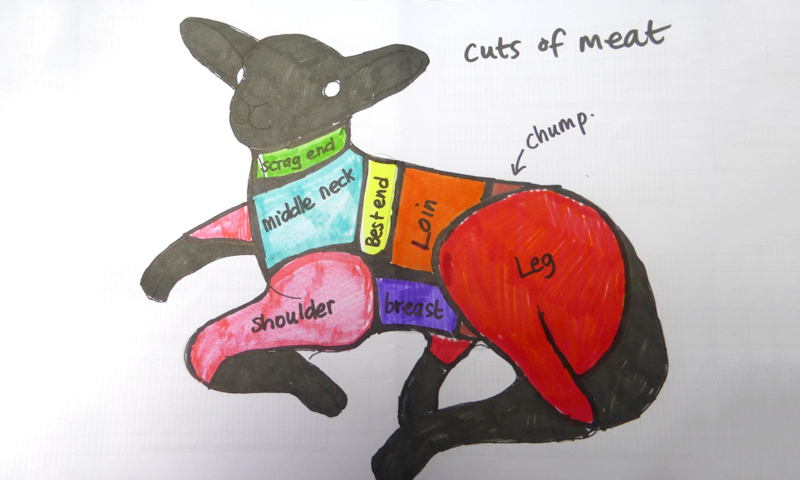 cuts of meat
chump.
scrag end
middle neck
Best end
Loin
Leg
shoulder
breast